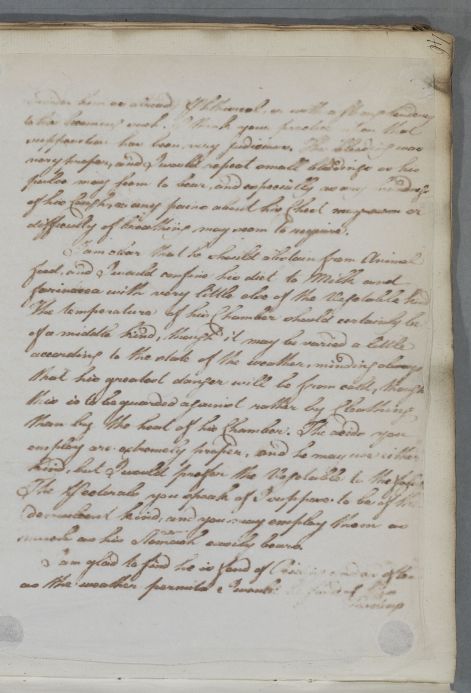 consider him as already Phthisical, or with a strong tendency
to his becoming such. I think your practice upon that
supposition has been very judicious. The bleeding was
very proper, and I would repeat small bleedings as his
pulse may seem to bear, and especially as any
of his Cough, or any pains about his Chest or
difficulty of breathing may seem to require.
I am clear that he should abstain from Animal
food, and I would confine his diet to Milk and
farinacea with very little else of the Vegetable kind
The temperature of his Chamber should certainly be
of a middle kind, though it may be varied a little
according to the state of the weather, minding always
that his greatest danger will be from cold, though
this is to be guarded against rather by Cloathing
than by the heat of his Chamber. The acids you
employ are extremely proper, and he may use either
kind, but I would prefer the Vegetable to the
The Pectorals you speak of I suppose to be of the
Demulcent kind, and you may employ them as
much as his Stomach easily bears.
I am glad to find he is fond of and as often
as the weather permits I would